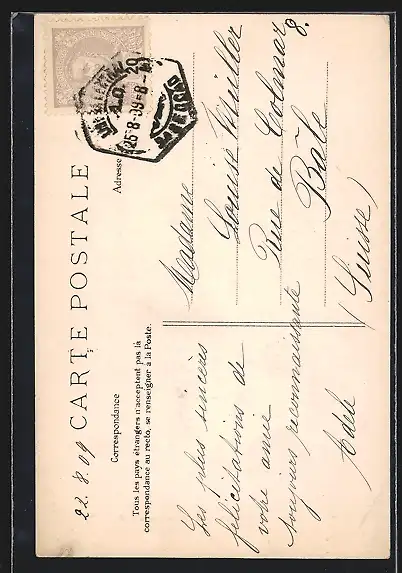 22.8.09 CARTE POSTALE
Correspondance
Tous les pays étrangers n'acceptent pas la
correspondance au recto, se renseigner à la Poste.
Les plus sincères
félicitations de
votre amie
toujours reconnaissante
Adèle
Adresse
Madame
Louise Müller
Rue de Colmar 8.
Bâle
(Suisse)
25-8-09